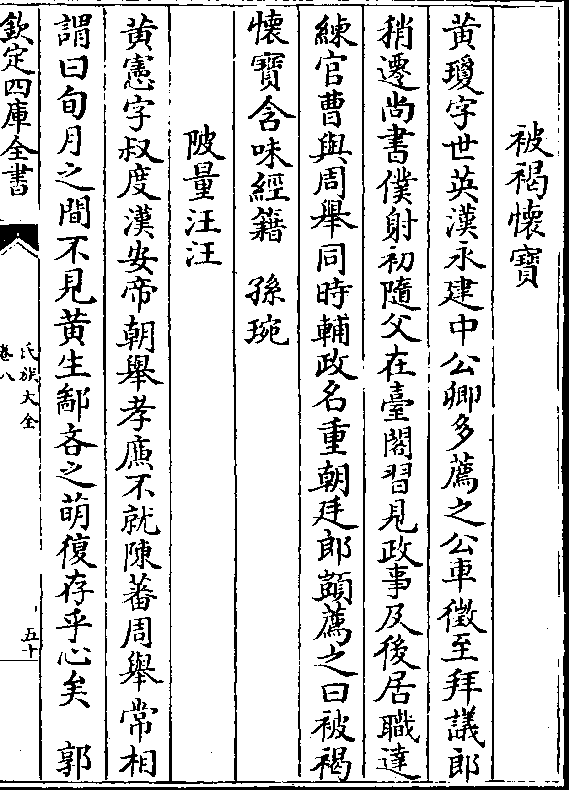 被褐懷寳
黄瓊字世英漢永建中公卿多薦之公車徴至拜議郎
稍遷尚書僕射初隨父在臺閣習見政事及後居職達
練官曹與周舉同時輔政名重朝廷郎顗薦之曰被褐
懷寳含味經籍　孫琬
陂量汪汪
黄憲字叔度漢安帝朝舉孝亷不就陳蕃周舉常相
謂曰旬月之間不見黄生鄙吝之萌復存乎心矣　郭
欽定四庫全書
氏族大全
卷八
五十